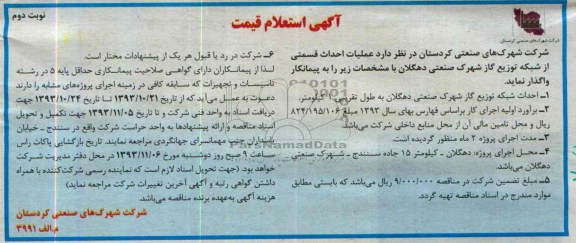 نوبت دوم
آگهی استعلام قیمت
شرکت شهرک‌های صنعتی کردستان
شرکت شهرک‌های صنعتی کردستان در نظر دارد عملیات احداث قسمتی
از شبکه توزیع گاز شهرک صنعتی دهگلان با مشخصات زیر را به پیمانکار
واگذار نماید.
۱ـ احداث شبکه توزیع گاز شهرک صنعتی دهگلان به طول تقریبی کیلومتر.
۲ـ برآورد اولیه اجرای کار براساس فهارس بهای سال ۱۳۹۳ مبلغ ۸۲۴/۱۹۵/۱۰۶
ریال و محل تامین مالی آن از محل منابع داخلی شرکت می‌باشد.
۳ـ مدت اجرای پروژه ۲ ماه منظور گردیده است.
۴ـ محل اجرای پروژه: دهگلان ـ کیلومتر ۱۵ جاده سنندج ـ شهرک صنعتی
دهگلان می‌باشد.
۵ـ مبلغ تضمین شرکت در مناقصه ۹/۰۰۰/۰۰۰ ریال می‌باشد که بایستی مطابق
موارد مندرج در اسناد مناقصه تهیه گردد.
۶ـ شرکت در رد یا قبول هر یک از پیشنهادات مختار است.
لذا از پیمانکاران دارای گواهی صلاحیت پیمانکاری حداقل پایه ۵ در رشته
تاسیسات و تجهیزات که سابقه کافی در زمینه اجرای پروژه‌های مشابه را دارند
دعوت به عمل می‌آید که از تاریخ ۱۳۹۳/۱۰/۲۱ تا تاریخ ۱۳۹۳/۱۰/۲۴ جهت
دریافت اسناد به واحد فنی شرکت و تا تاریخ ۱۳۹۳/۱۱/۰۵ جهت تکمیل و تحویل
اسناد مناقصه و ارائه پیشنهادها به واحد حراست شرکت واقع در سنندج ـ خیابان
پاسداران ـ جنب مهمانسرای جهانگردی مراجعه نمایند. تاریخ بازگشایی پاکات راس
ساعت ۹ صبح روز دوشنبه مورخ ۱۳۹۳/۱۱/۰۶ در محل دفتر مدیریت شرکت
خواهد بود. (جهت تحویل اسناد لازم است که نماینده رسمی شرکت‌کننده با همراه
داشتن گواهی رتبه و آگهی آخرین تغییرات شرکت مراجعه نماید)
هزینه آگهی به‌عهده برنده مناقصه می‌باشد.
شرکت شهرک‌های صنعتی کردستان
م.الف ۳۹۹۱